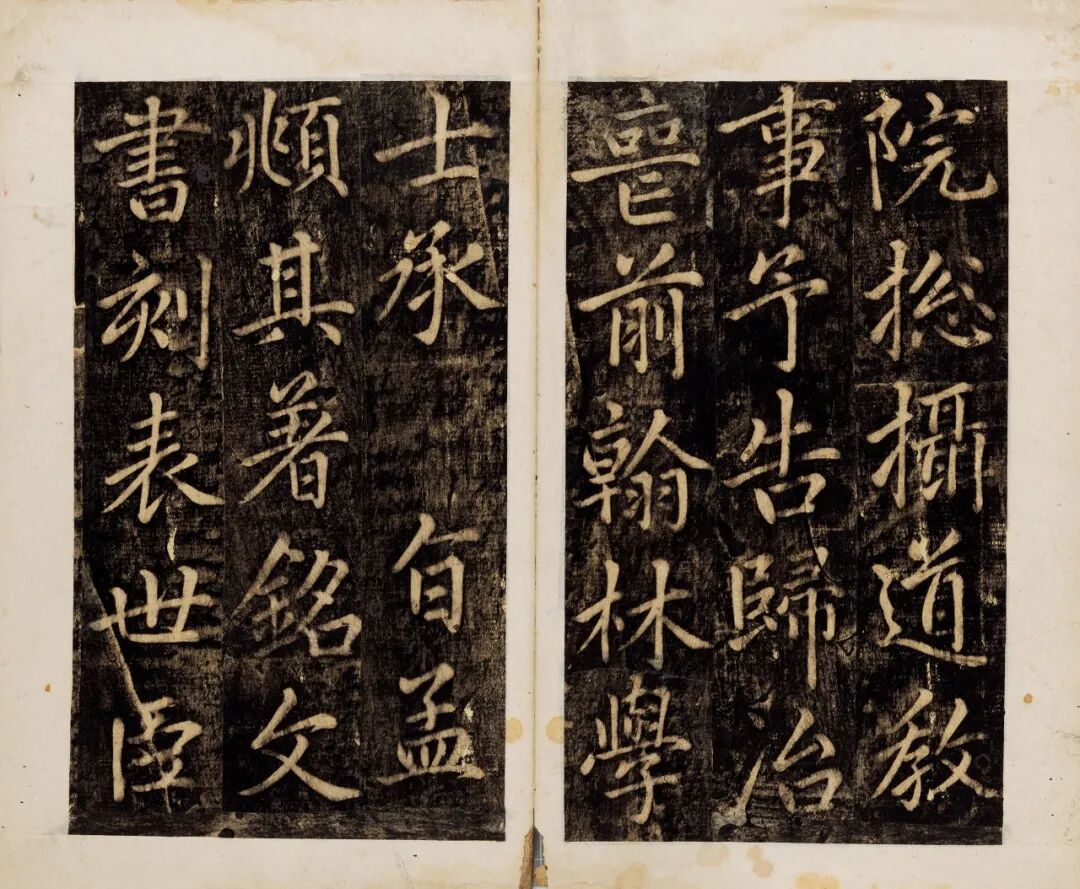 院揔攝道教
事予告歸治
喪前翰林學
士承旨孟
頫其著銘文
書刻表世